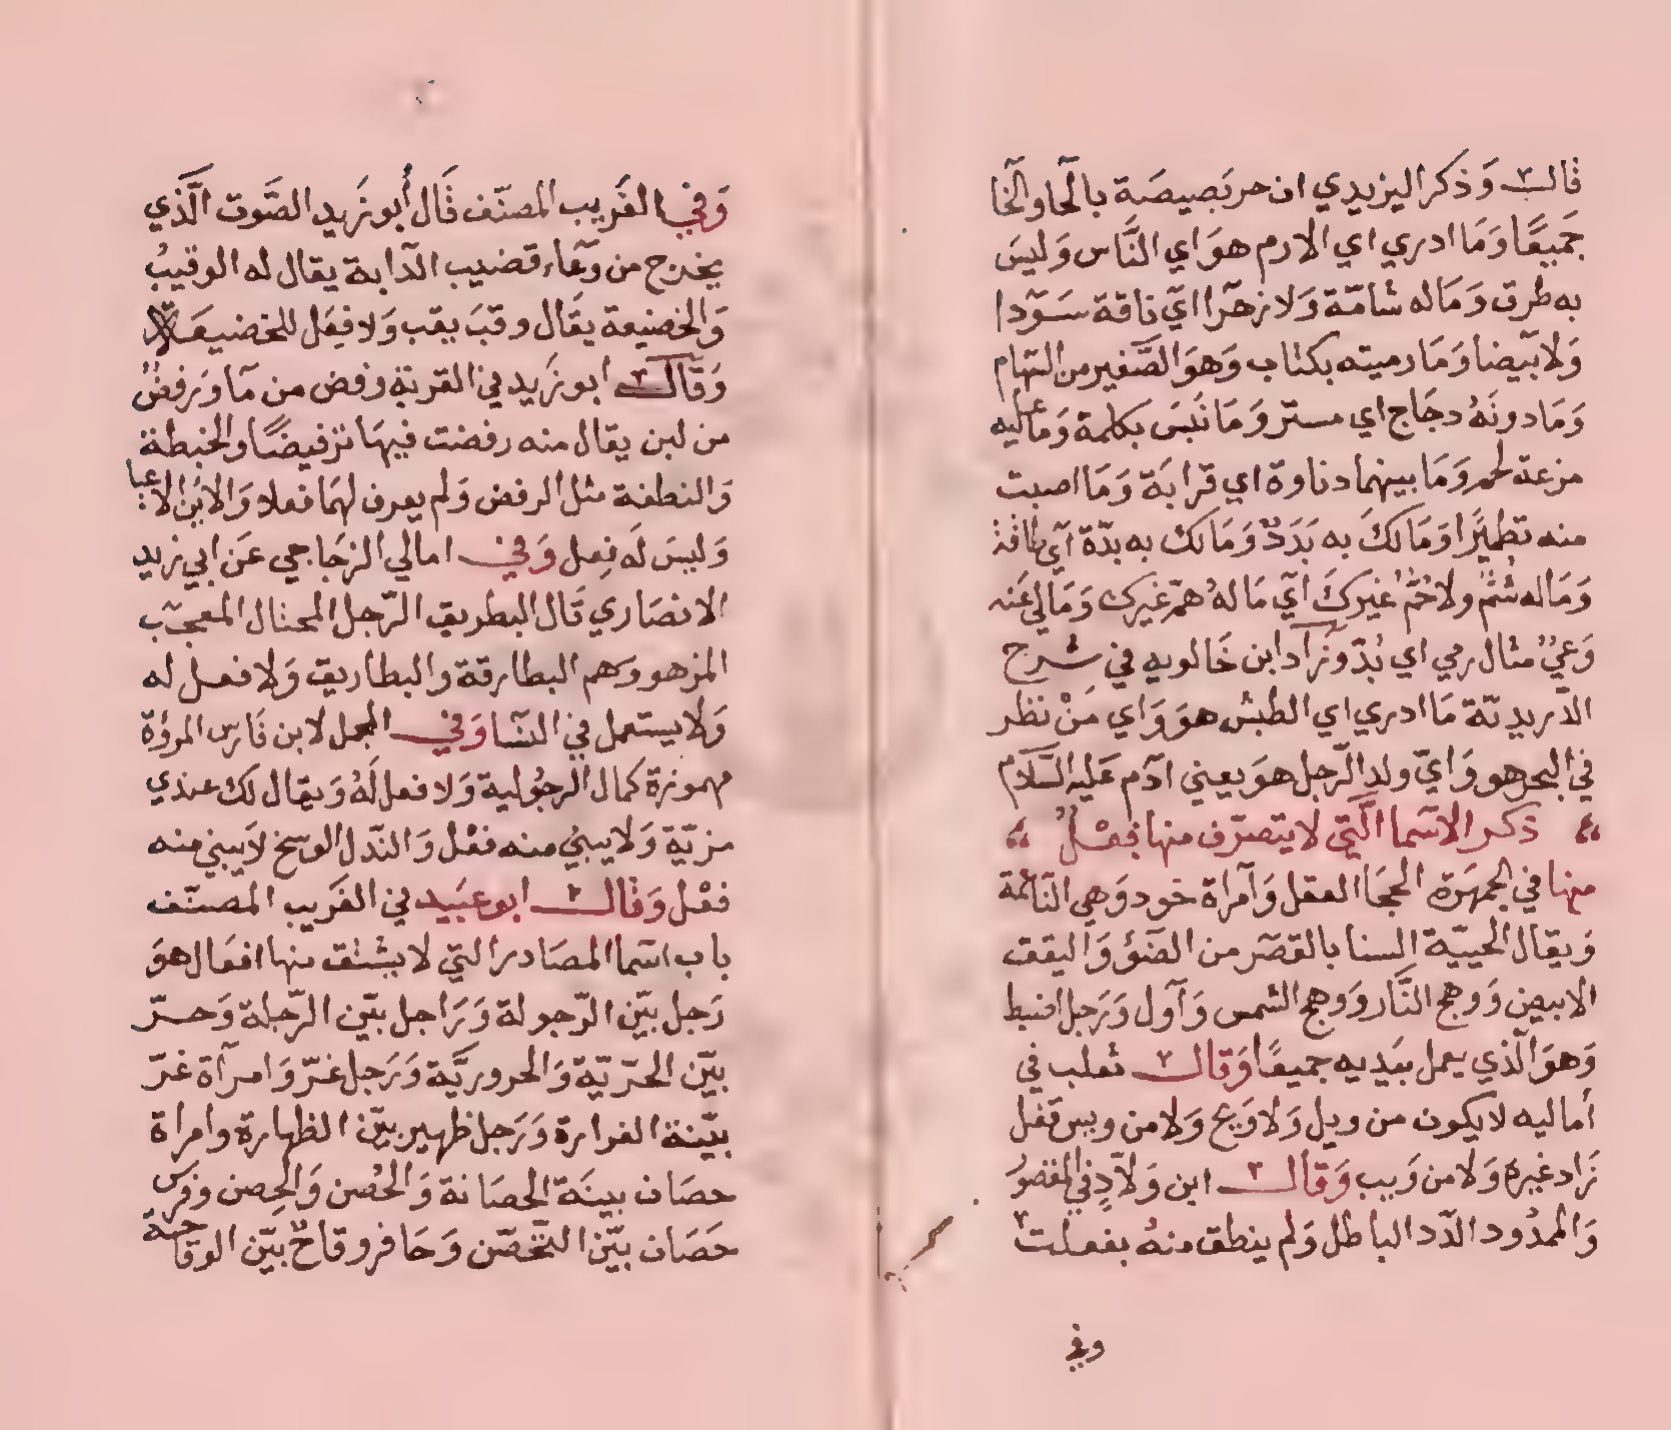 قال وَذكر اليزيدي ان حربَصيصَة بالحآ والخآ
جَميعًا وَمَا ادري اي الارم هوَ اي النَّاس وَليسَ
به طرق وَمَاله شامّة وَلا زهرآ اي ناقة سَوَدآ
وَلا بَيضا وَمَا رميته بكتاب وَهوَ الصَّغير من السّهام
وَمَا دونَهُ دجَاج اي مستر وَمَا نَبسَ بكلمة وَمَا عليه
مزعة لحم وَمَا بينهما دناوة اي قرابَة وَمَا اصبت
منه تطميرًا وَمَا لكَ به بَدَدٌ وَمَا لك به بدّة آي طاقة
وَمَاله سُمٌّ ولا حُمٌّ غيركَ آي مَا لهُ همّ غيرك وَمَا لي عَنه
وَعيٌ مثال رمي اي بُدّ وزَاد ابن خَالويه في شرح
الدّريديّة مَا ادري اي الطبش هوَ وَاي مَنْ نظر
في البحر هو وَايّ ولد الرّجل هوَ يعني ادَم عَليه السَّلام
ذكر الاسَما الَّتي لا يتصرّف منها فِعْلٌ
منها في الجمهَرَة الحجَا العقل وَآمراة خود وَهي النّاعمة
وَيقال الحييّة السنا بالقصَر من الضَوْ وَاليقق
الابيض وَوهج النَّار وَوهج الشمس وَآول وَرَجل اضبط
وَهوَ الَّذي يعمل بيَديه جميعًا وَقال ثعلب في
أماليه لا يكون من ويل وَلا وَيح وَلا من ويس فعل
زَاد غيره وَلا من وَيب وَقال ابن وَلّادٍ في المقصُور
وَالممدُود الدّد الباطل وَلم ينطق منهُ بفعلت
وفي
وَفي الغَريب المصنّف قَال أبو زَيد الصَّوت الَّذي
يخرج من وِعَاء قضيب الدّابة يقال له الوقيبُ
وَالخضيعة يقَال وقبَ يقب وَلا فِعَل للخضيعَة
وَقال ابو زَيد في القربة رفض من مَا وَرفضٌ
من لبن يقال منه رفضت فيهَا ترفيضًا والخبطة
وَالنطفة مثل الرفض وَلم يعرف لهمَا فعلا وَالاَين الاعيا
وَليسَ لَه فِعل وَفي امالي الزجَاجي عَن ابي زيد
الانصَاري قَال البطريق الرّجل المختال المعجَب
المزهو وَهم البطارقة والبطاريق وَلا فعل له
وَلا يستعمل في النسَا وَفي المجمل لابن فَارس المروُة
مهموزة كمال الرجُولية وَلا فعل لَهُ وَيقال لك عندي
مزيّة وَلا يبني منه فعْل وَالنّدل الوسخ لا يَبني منه
فعْل وَقال ابو عبَيد في الغَريب المصنّف
باب اسَما المصَادر التي لا يشتق منها افعَال هوَ
رَجل بيّن الرّجولة وَرَاجل بيّن الرّجلة وَحرّ
بيّن الحرّيّة وَالحروريَّة وَرَجل غرّ وَامرَآة غرّ
بيّنة الغرارة وَرَجل ظهير بيّن الظهارة وامراة
حصَان بينَة الحصَانة وَالحُصن وَالحِصن وفَرس
حَصَان بيّن التحَصّن وَحَافر وقاحٌ بيّن الوقاحة